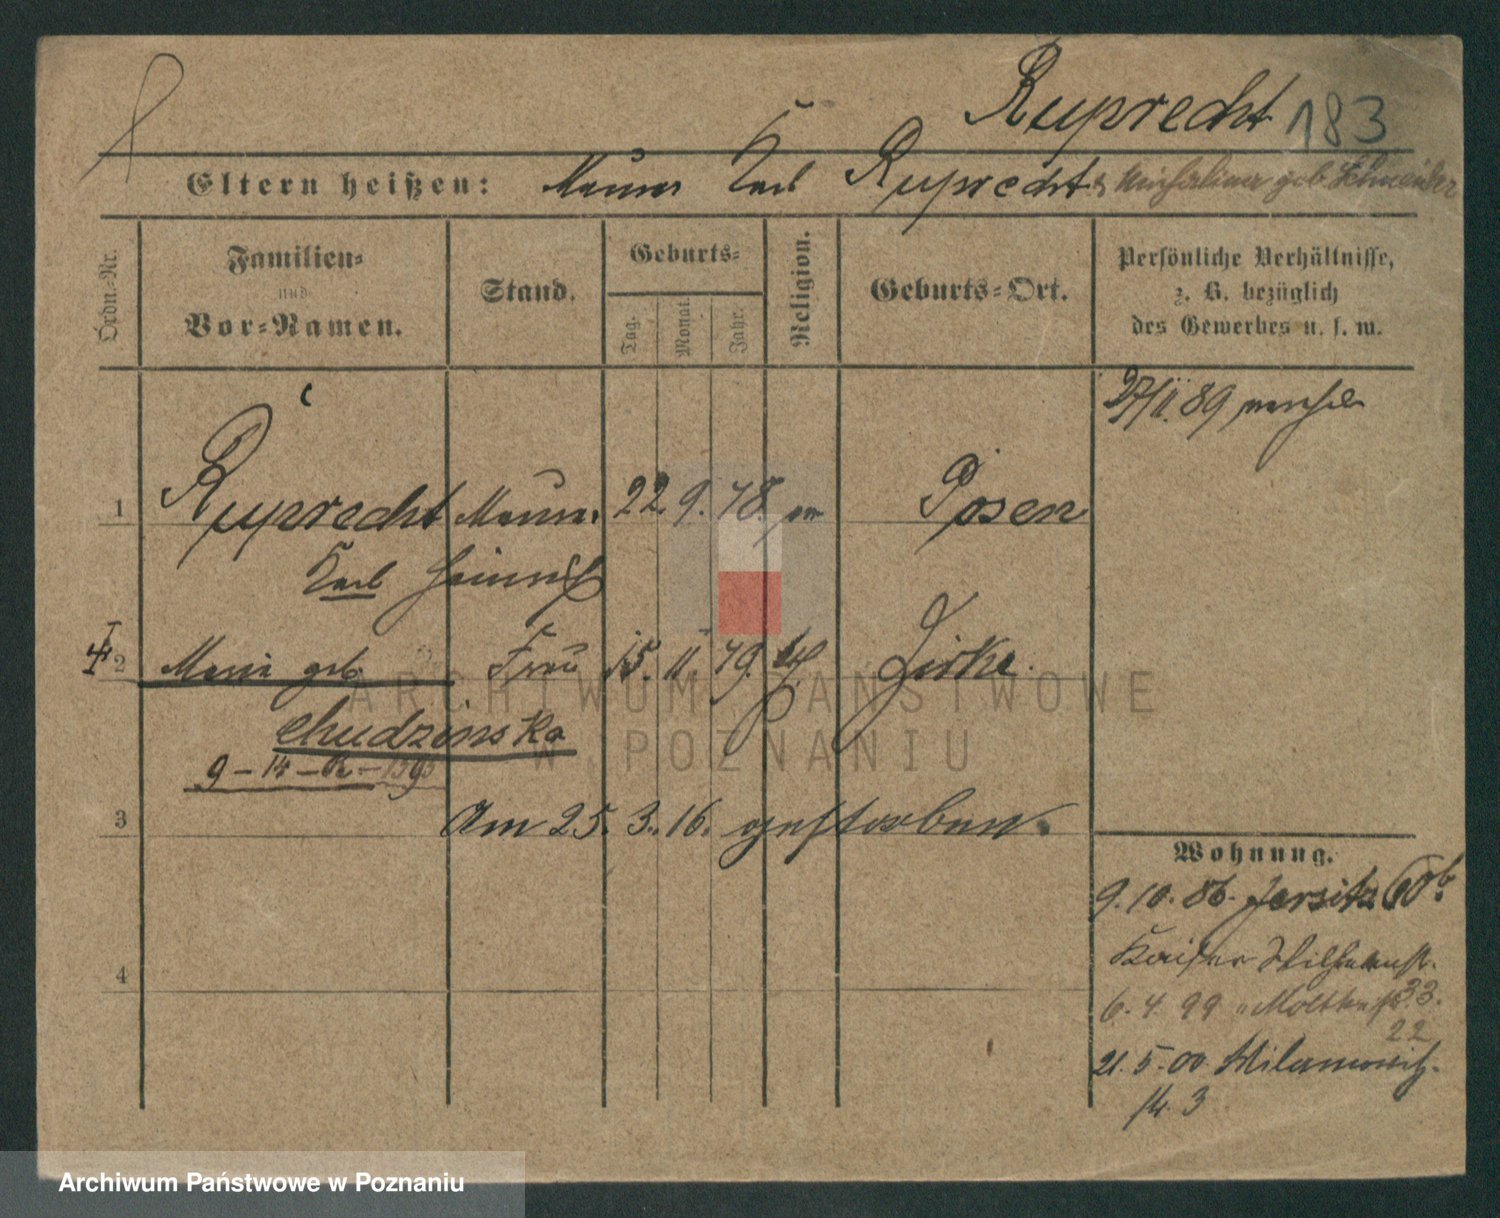 Ruprecht 183
Eltern heißen: Maurer Karl Ruprecht & Michalina geb Schneider
Ordn.-Nr.
Familien-
und
Vor-Namen.
Stand.
Geburts-
Tag.
Monat.
Jahr.
Religion.
Geburts-Ort.
Persönliche Verhältnisse,
z. B. bezüglich
des Gewerbes u. s. w.
27/11. 89
1 Ruprecht Maurer 22. 9. 78. Posen
Karl Heinrich
2 Marie geb Frau 15. 11. 79. kth Zirke.
Chudzinska
9-14-
3 Am 25. 3. 16. gestorben.
4
Wohnung.
9. 10. 86. Jersitz
Kaiser Wilhelmstr.
33.
6. 4. 99 Moltkestr
22
21. 5. 00.
14. 3
ARCHIWUM PAŃSTWOWE
W POZNANIU
Archiwum Państwowe w Poznaniu